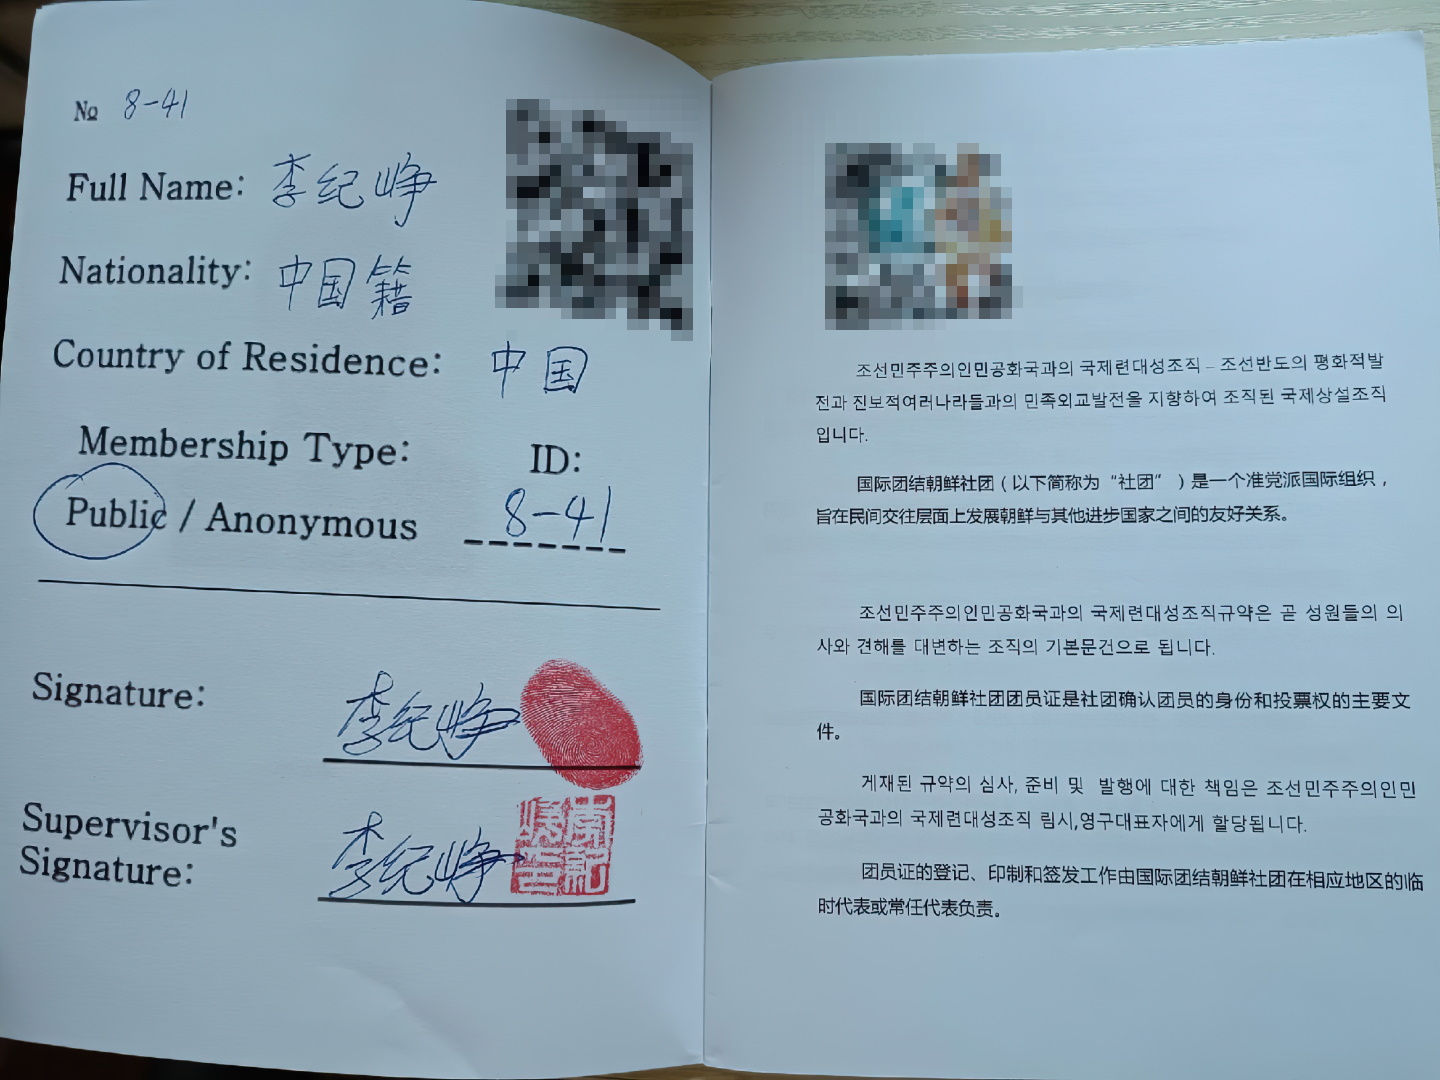 № 8-41
Full Name: 李纪峥
Nationality: 中国籍
Country of Residence: 中国
Membership Type:
ID:
Public / Anonymous
8-41
Signature: 李纪峥
Supervisor's
Signature: 李纪峥
조선민주주의인민공화국과의 국제련대성조직 – 조선반도의 평화적발
전과 진보적여러나라들과의 민족외교발전을 지향하여 조직된 국제상설조직
입니다.
国际团结朝鲜社团（以下简称为“社团”）是一个准党派国际组织，
旨在民间交往层面上发展朝鲜与其他进步国家之间的友好关系。
조선민주주의인민공화국과의 국제련대성조직규약은 곧 성원들의 의
사와 견해를 대변하는 조직의 기본문건으로 됩니다.
国际团结朝鲜社团团员证是社团确认团员的身份和投票权的主要文
件。
게재된 규약의 심사, 준비 및 발행에 대한 책임은 조선민주주의인민
공화국과의 국제련대성조직 림시,영구대표자에게 할당됩니다.
团员证的登记、印制和签发工作由国际团结朝鲜社团在相应地区的临
时代表或常任代表负责。